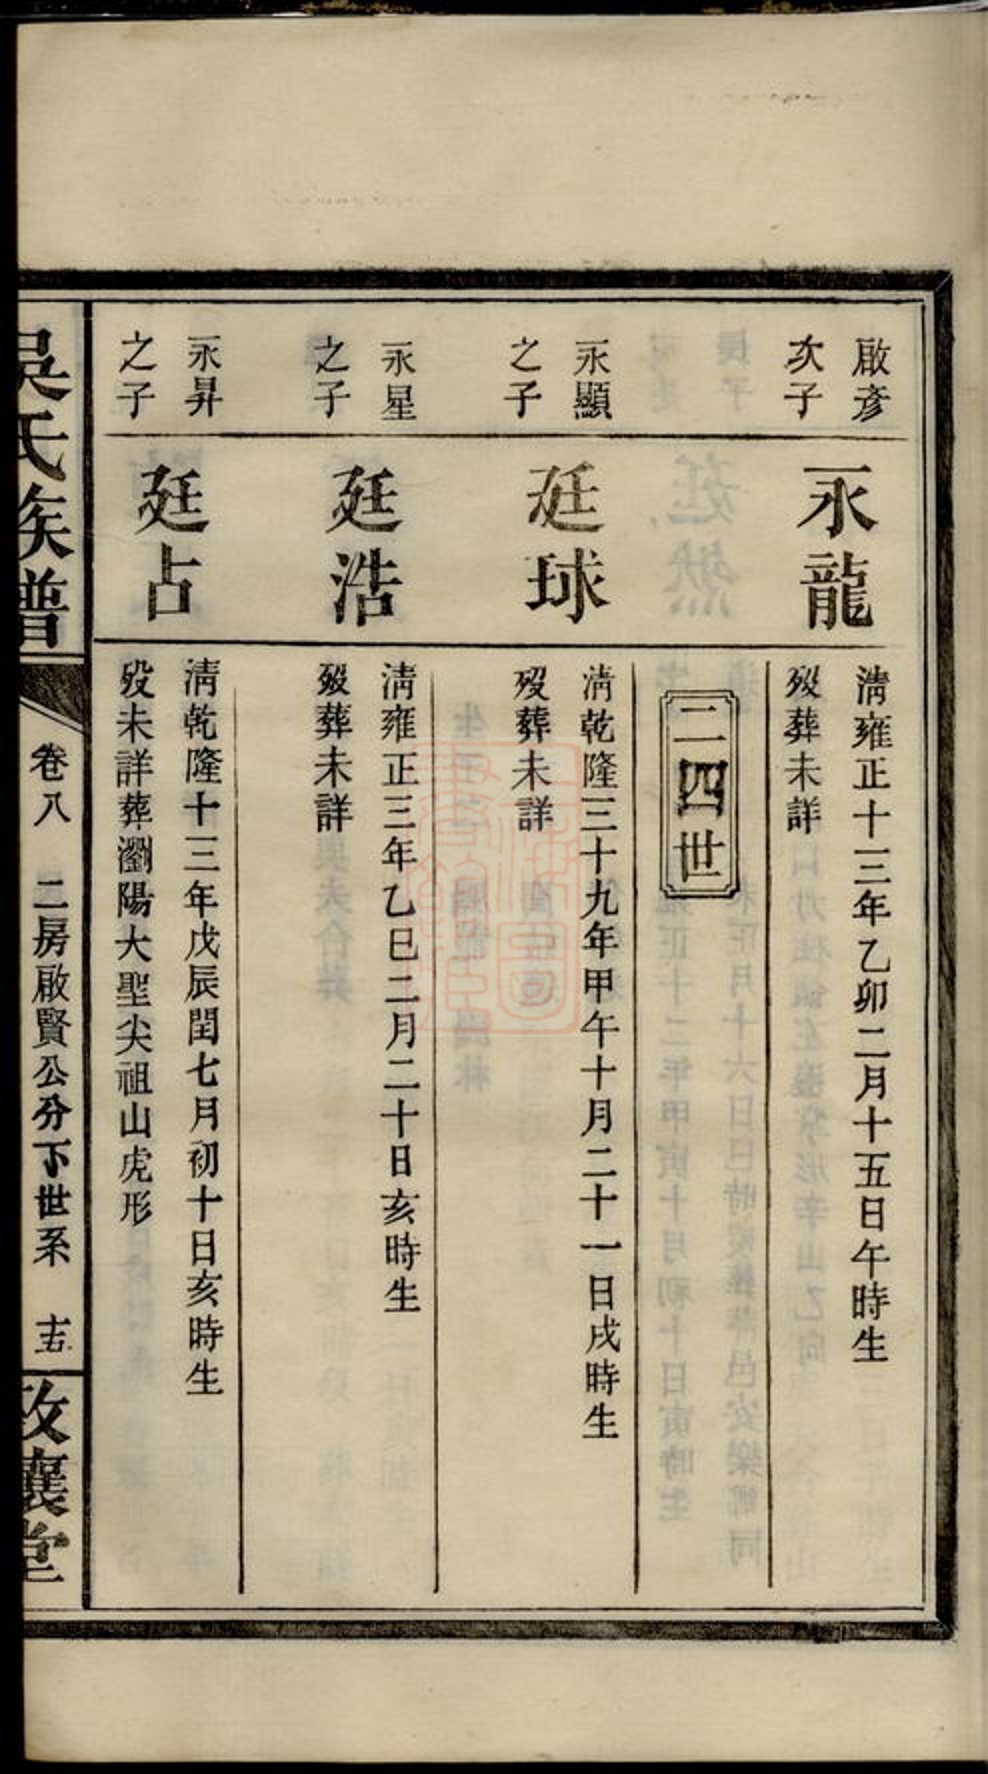 啟彥
次子
永龍
清雍正十三年乙卯二月十五日午時生
歿葬未詳
二四世
永顯
之子
廷球
清乾隆三十九年甲午十月二十一日戌時生
歿葬未詳
永星
之子
廷浩
清雍正三年乙巳二月二十日亥時生
歿葬未詳
永昇
之子
廷占
清乾隆十三年戊辰閏七月初十日亥時生
歿未詳葬瀏陽大聖尖祖山虎形
吳氏族譜
卷八 二房啟賢公分下世系 十五
攸讓堂